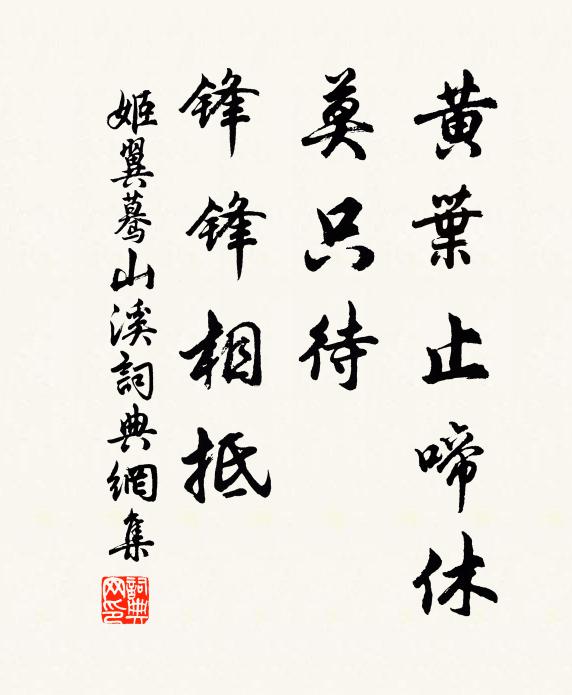 黄葉止啼休
莫只待
鋒鋒相抵
姬翼驀山溪詞典網集
詞典网印